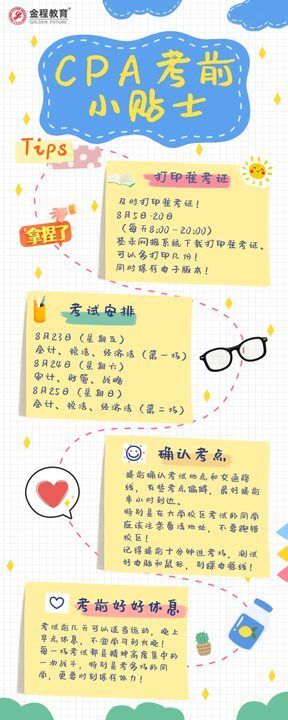 金程教育®
GOLDEN FUTURE
CPA考前
小贴士
Tips
打印准考证
及时打印准考证！
8月5日-20日
（每天8:00-20:00）
登录网报系统下载打印准考证。
可以多打印几份！
同时保存电子版本！
拿捏了
考试安排
8月23日（星期五）
会计、税法、经济法（第一场）
8月24日（星期六）
审计、财管、战略
8月25日（星期日）
会计、税法、经济法（第二场）
确认考点
提前确认考试地点和交通路
线，有些考点偏僻，最好提前
半小时到达。
特别是在大学校区考试的同学
应该注意看清地址，不要跑错
校区！
记得提前十分钟进考场，测试
好电脑和鼠标，别踩电源线！
考前好好休息
考试前几天可以适当运动，晚上
早点休息，不宜学习到太晚！
每一场考试都是精神高度集中的
一场战斗，特别是考多场的同
学，更要时刻保存体力！